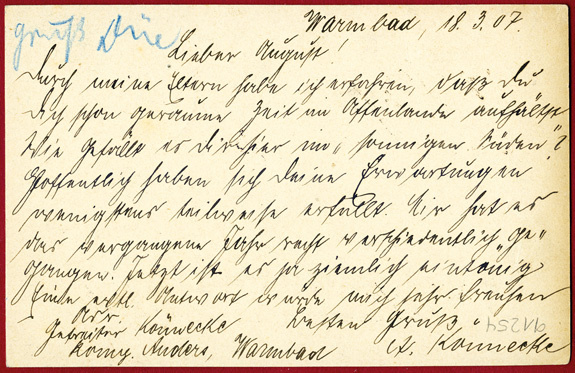 Warmbad, 18.3.07.
Lieber August!
Durch meine Eltern habe ich erfahren, daß Du
Dich schon geraume Zeit im Affenlande aufhältst.
Wie gefällt es Dir hier im „sonnigen Süden"?
Hoffentlich haben sich Deine Erwartungen
wenigstens teilweise erfüllt. Mir hat es
das vergangene Jahr recht verschiedentlich „ge"
gangen. Jetzt ist es ja ziemlich eintönig
Eine evtl. Antwort würde mich sehr freuen
Adr.
Gefreiter Könnecke Besten Gruß,
Komp. Anders, Warmbad A. Könnecke
91254